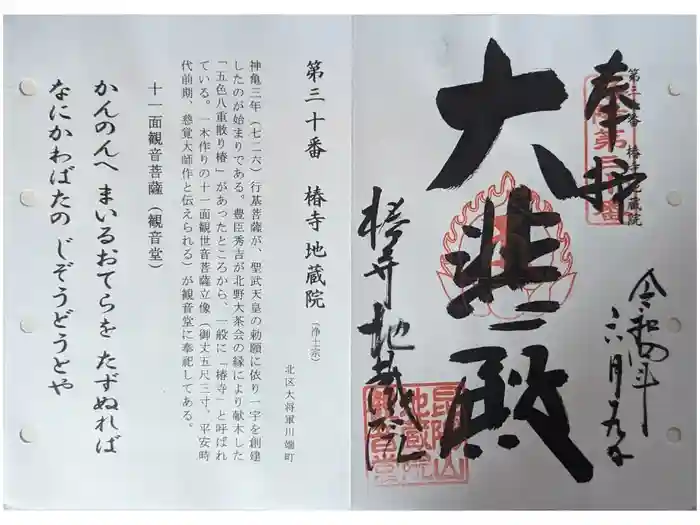 奉拝
第三十番 椿寺地蔵院
大悲殿
椿寺 地蔵院
令和四年
六月
第三十番 椿寺 地蔵院 (浄土宗)
北区大将軍川端町
神亀三年(七二六)行基菩薩が、聖武天皇の勅願に依り一宇を創建
したのが始まりである。豊臣秀吉が北野大茶会の縁により献木した
「五色八重散り椿」があったところから、一般に「椿寺」と呼ばれ
ている。一木作りの十一面観世音菩薩立像(御丈五尺三寸、平安時
代前期、慈覚大師作と伝えられる)が観音堂に奉祀してある。
十一面観音菩薩(観音堂)
かんのんへ まいるおてらを たずぬれば
なにかわばたの じぞうどうとや